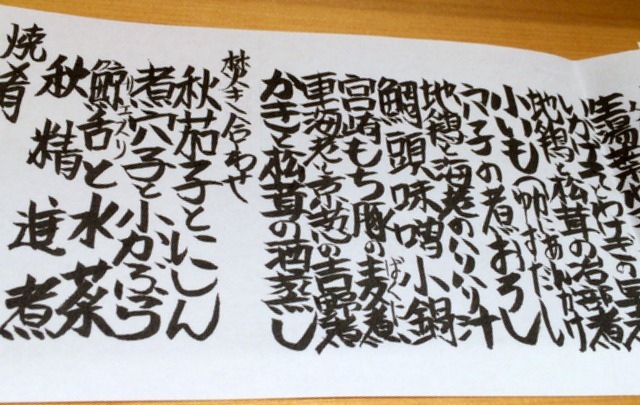 いか子とわけぎの
地鶏と松茸の治部煮
小いも(ゆずだし
穴子の煮おろし
地鶏と海老のいり汁
鯛頭味噌小鍋
宮崎もち豚の麦煮
車海老と京芋の吉野煮
かきと松茸の酒蒸し
焚き合わせ
秋茄子とにしん
煮穴子と小かぶら
鯨舌と水菜
秋精進煮
焼肴